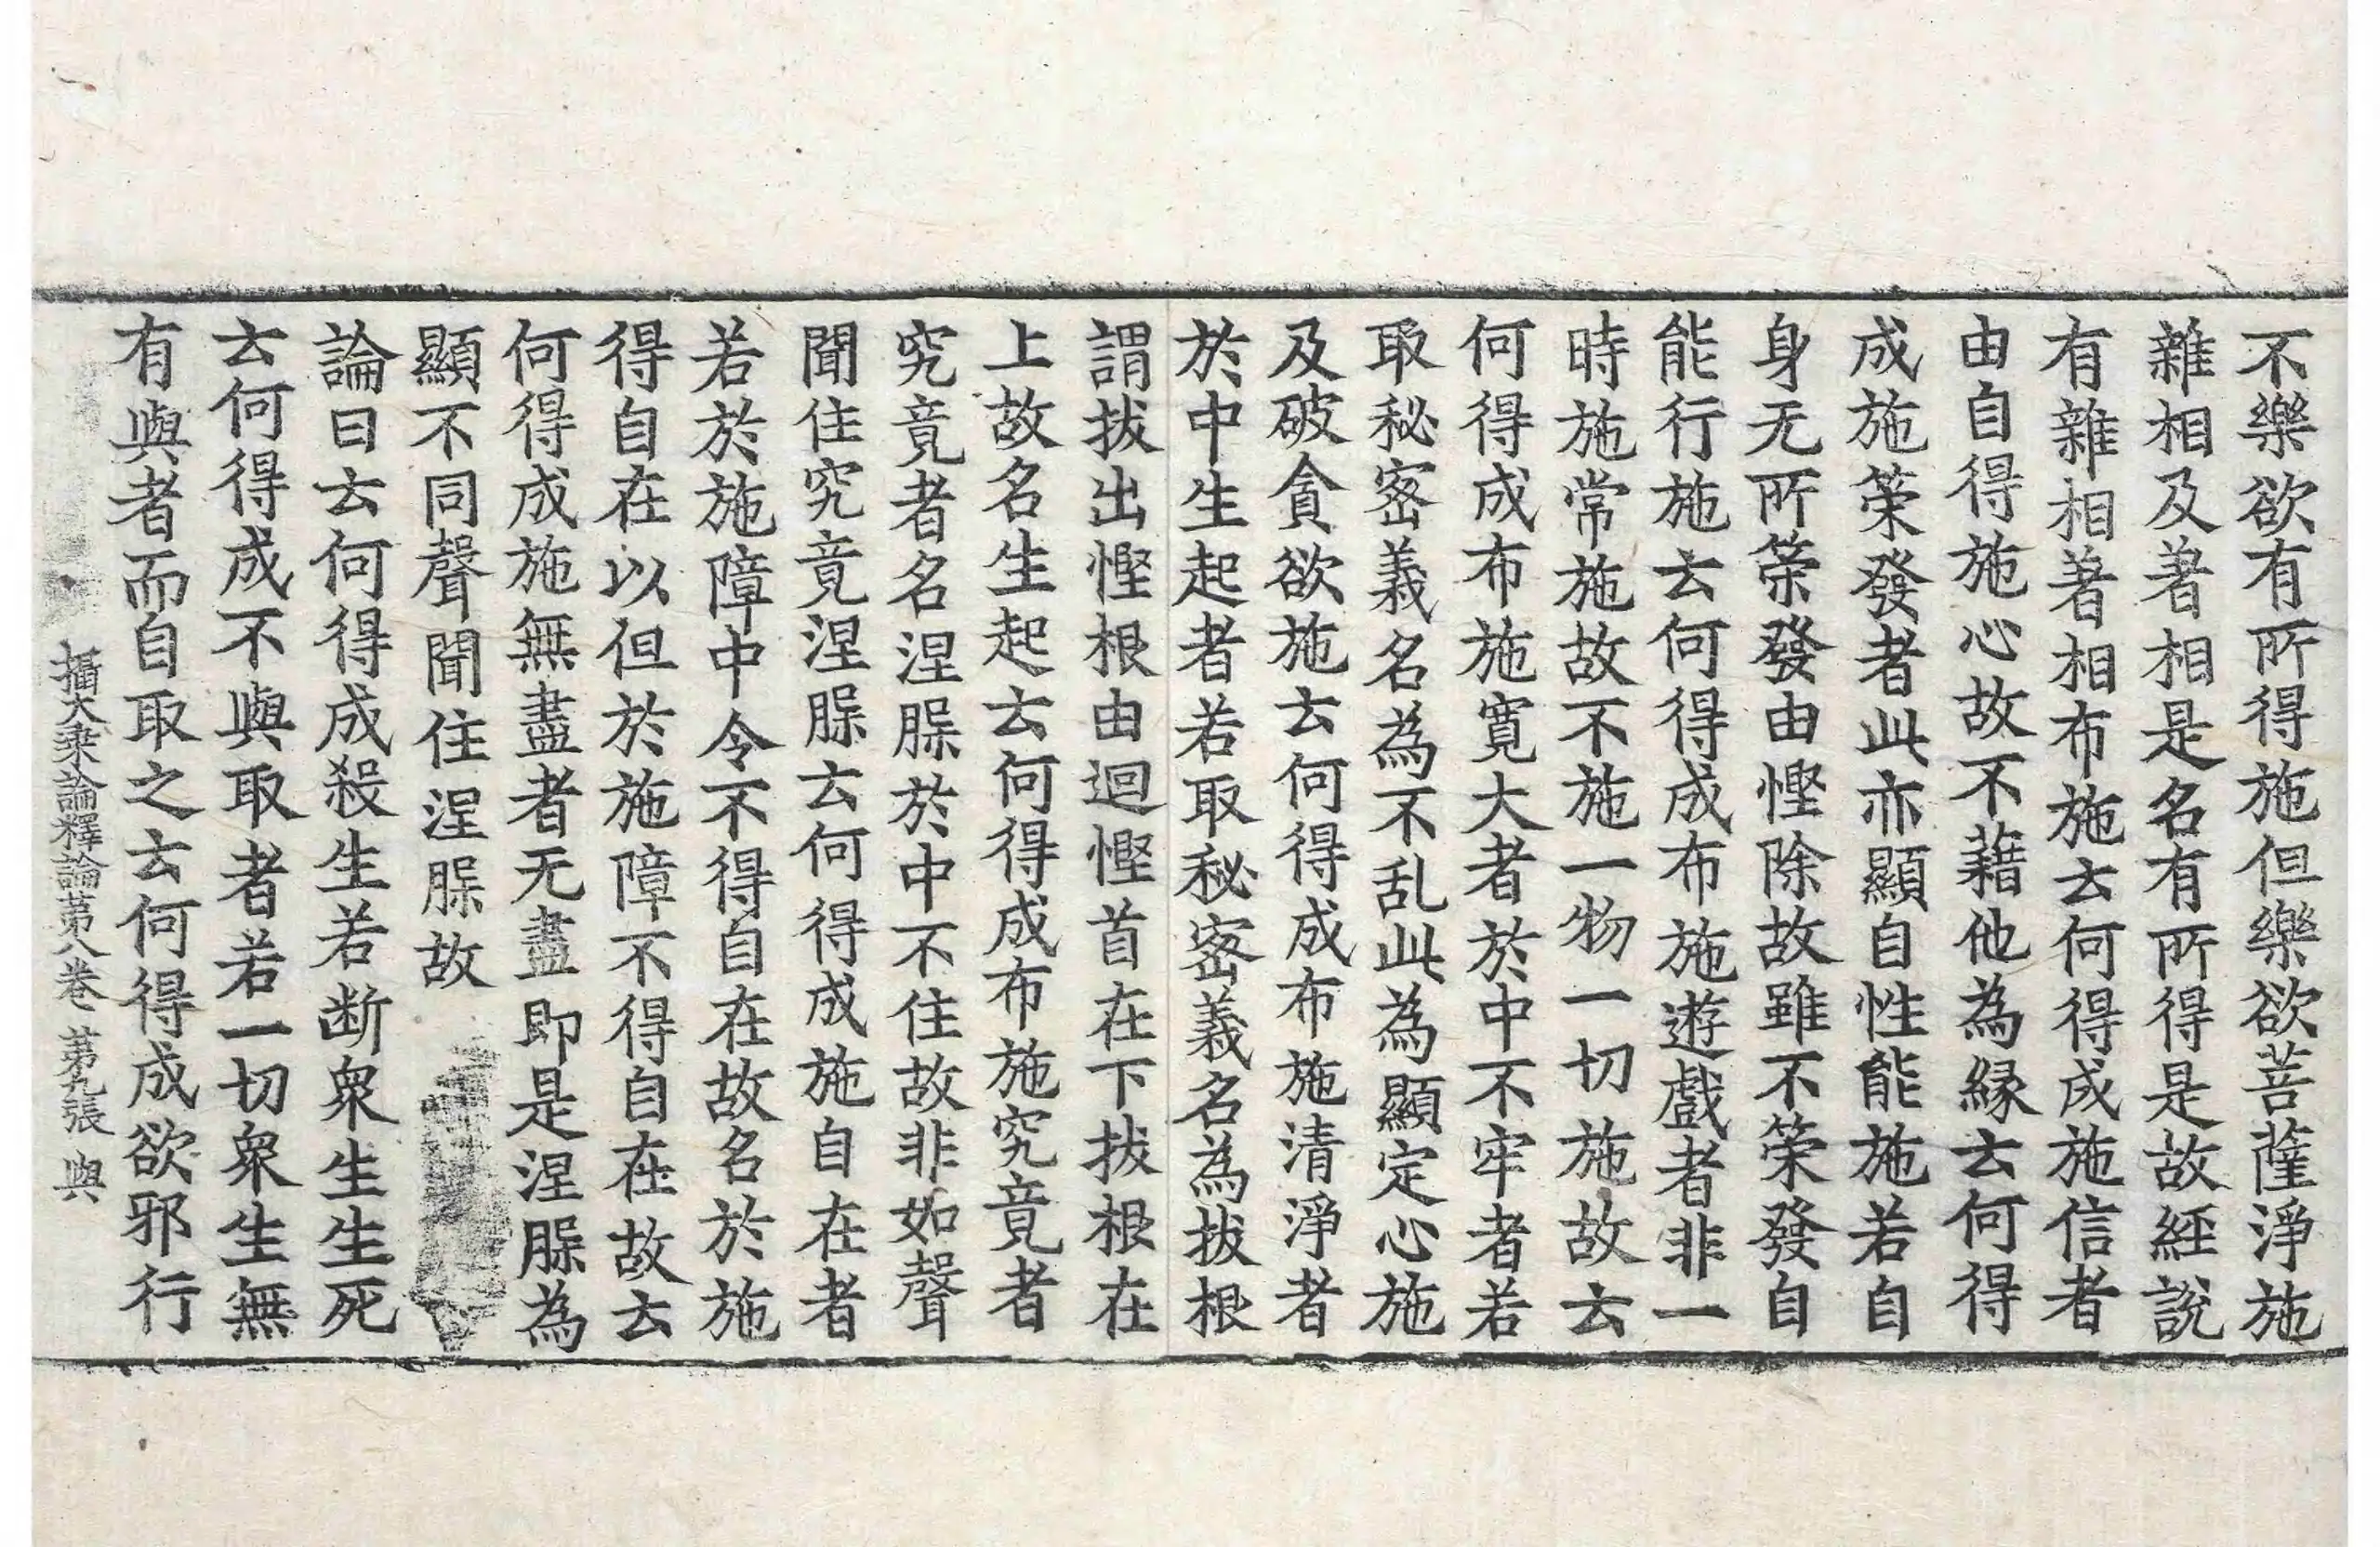 不樂欲有所得施但樂欲菩薩淨施
雜相及著相是名有所得是故經說
有雜相著相布施去何得成施信者
由自得施心故不藉他為緣去何得
成施榮發者此亦顯自性能施若自
身无所榮發由慳除故雖不榮發自
能行施去何得成布施遊戲者非一
時施常施故不施一物一切施故去
何得成布施寬大者於中不牢者若
取秘密義名為不乱此為顯定心施
及破貪欲施去何得成布施清淨者
於中生起者若取秘密義名為拔根
謂拔出慳根由迴慳首在下拔根在
上故名生起去何得成布施究竟者
究竟者名涅脲於中不住故非如聲
聞住究竟涅脲去何得成施自在者
若於施障中令不得自在故名於施
得自在以但於施障不得自在故去
何得成施無盡者无盡即是涅脲為
顯不同聲聞住涅脲故
論曰去何得成殺生若断衆生生死
去何得成不與取者若一切衆生無
有與者而自取之去何得成欲邪行
攝大乘論釋論第八卷 第九張 與